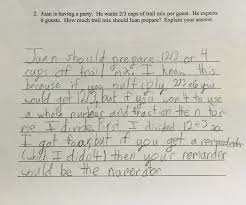 2. Juan is having a party. He wants 2/3 cups of trail mix per guest. He expects
6 guests. How much trail mix should Juan prepare? Explain your answer.
Juan should prepare 12/3 or 4
cups of trail mix. I know this
because if you multiply 2/3 x 6 you
would get 12/3, but if you want to use
a whole number and fraction then for
me I divide. First I divided 12÷3 so
I got four, but if you get a remainder
(which I didn't) then your remander
would be the numerator.